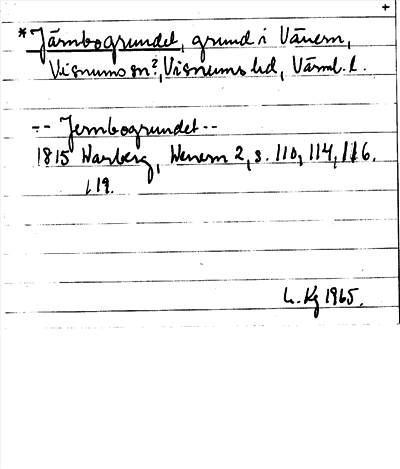 +
*Järnbogrundet, grund i Vänern,
Visnums sn?, Visnums hd, Värml. l.
-- Jernbogrundet --
1815 Warberg, Wenern 2, s. 110, 114, 116.
119.
L. Kg 1965.